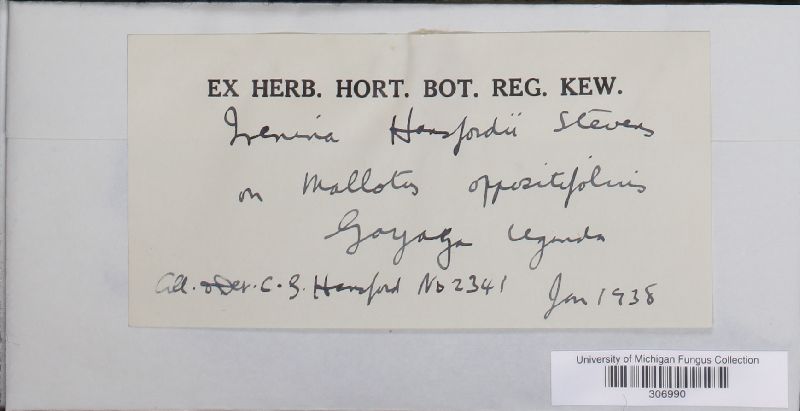 EX HERB. HORT. BOT. REG. KEW.
Irenina Hansfordii Stevens
on Mallotus oppositifolius
Gayaga Uganda
Coll. & Det. C. G. Hansford No 2341 Jan 1938
University of Michigan Fungus Collection
306990